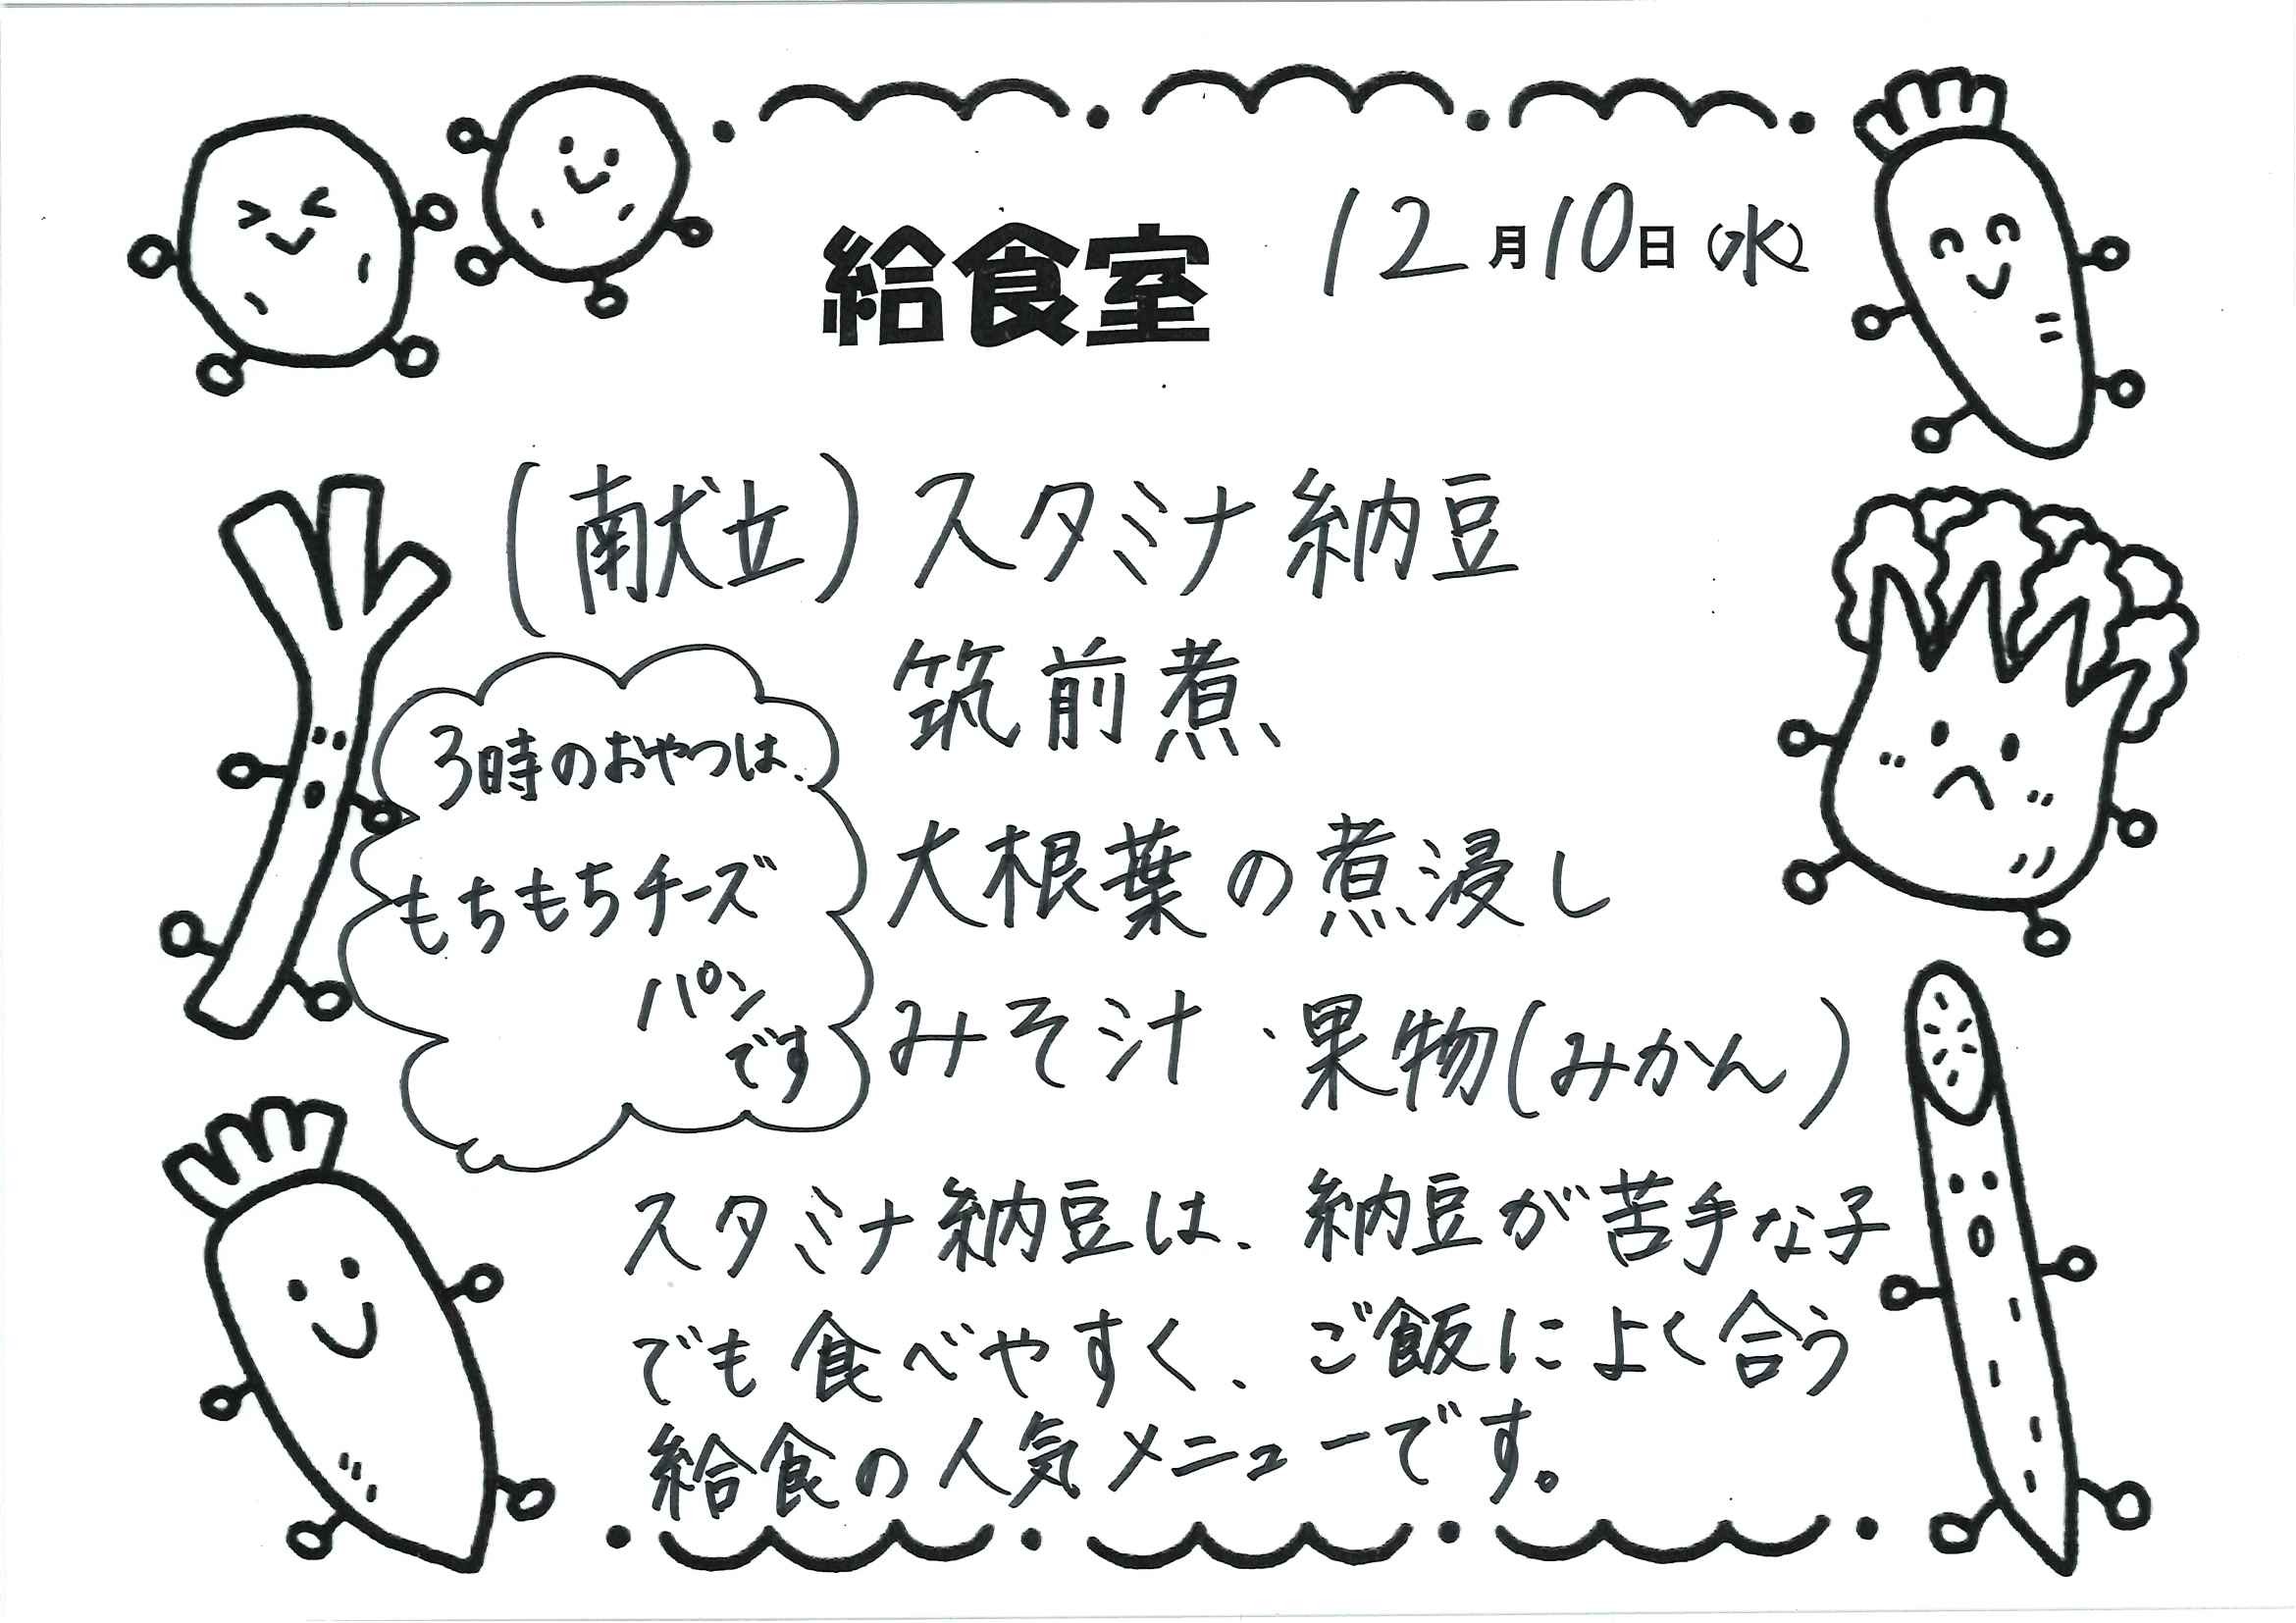 給食室 12月10日(水)
(献立)スタミナ納豆
筑前煮
大根葉の煮浸し
みそ汁・果物(みかん)
3時のおやつは、
もちもちチーズ
パン
です
スタミナ納豆は、納豆が苦手な子
でも食べやすく、ご飯によく合う
給食の人気メニューです。